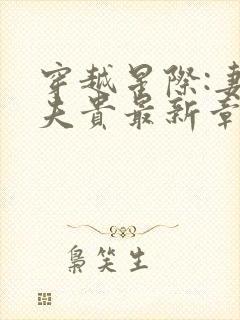 穿越星際:妻
夫貴最新章
梟笑生